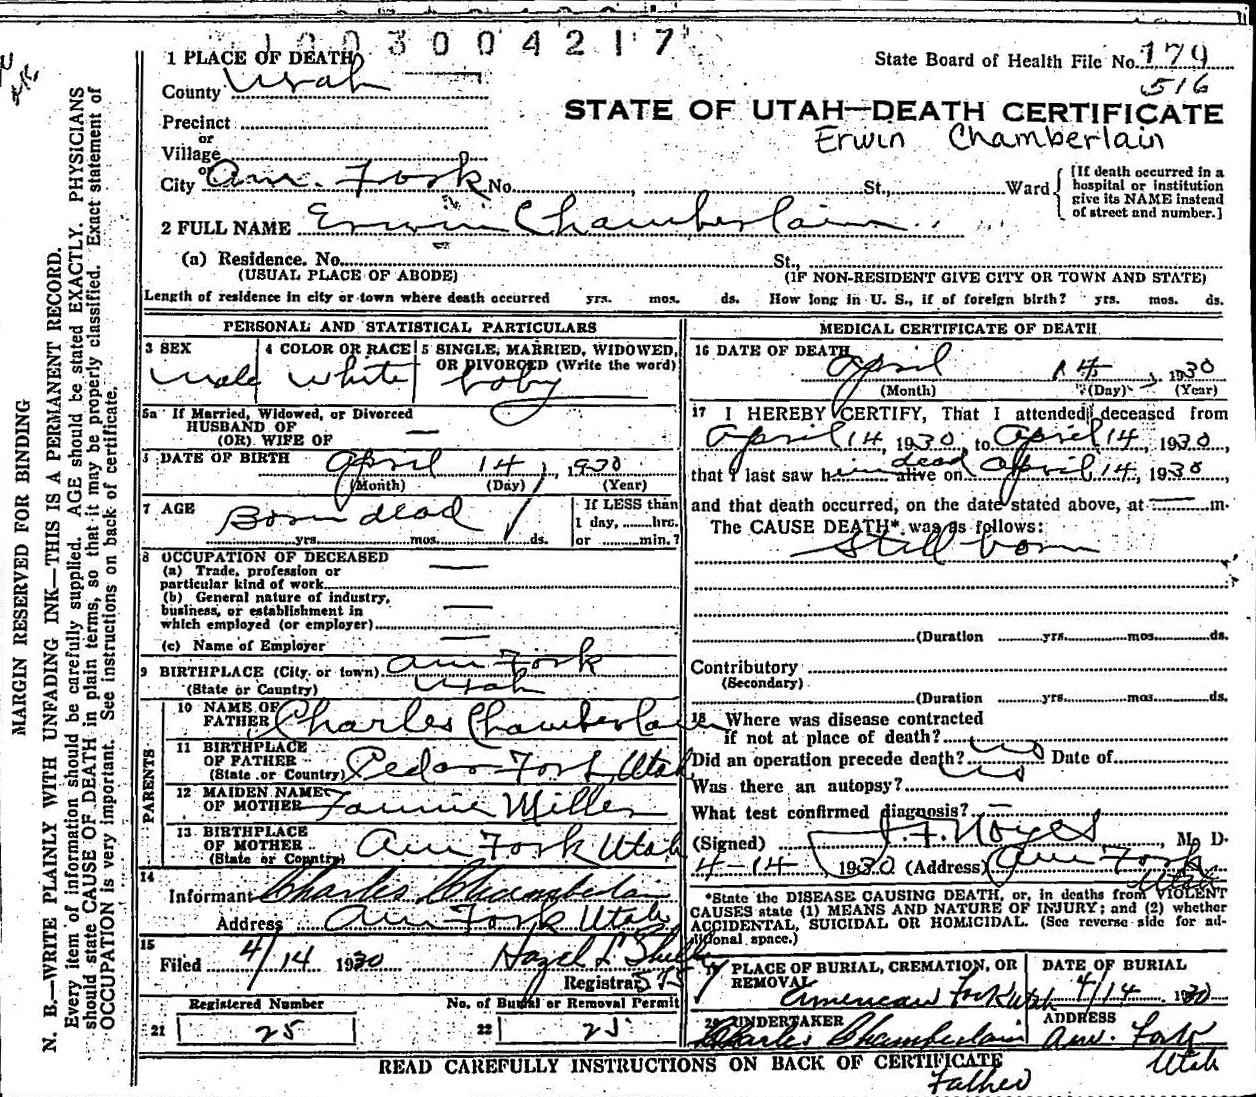 1003004217
1 PLACE OF DEATH
State Board of Health File No. 179
County Utah
516
STATE OF UTAH—DEATH CERTIFICATE
Precinct
Erwin Chamberlain
or
Village
or
City Am. Fork No. , St., Ward
[If death occurred in a
hospital or institution
give its NAME instead
of street and number.]
2 FULL NAME Erwin Chamberlain
(a) Residence. No. St.,
(USUAL PLACE OF ABODE) (IF NON-RESIDENT GIVE CITY OR TOWN AND STATE)
Length of residence in city or town where death occurred yrs. mos. ds. How long in U. S., if of foreign birth? yrs. mos. ds.
PERSONAL AND STATISTICAL PARTICULARS
3 SEX
Male
4 COLOR OR RACE
White
5 SINGLE, MARRIED, WIDOWED,
OR DIVORCED (Write the word)
baby
5a If Married, Widowed, or Divorced
HUSBAND OF
(OR) WIFE OF —
DATE OF BIRTH April 14, 1930
(Month) (Day) (Year)
7 AGE Born dead
yrs. mos. ds.
If LESS than
1 day, hrs.
or min.?
8 OCCUPATION OF DECEASED
(a) Trade, profession or
particular kind of work —
(b) General nature of industry,
business, or establishment in
which employed (or employer) —
(c) Name of Employer —
9 BIRTHPLACE (City or town) Am Fork
(State or Country) Utah
PARENTS
10 NAME OF
FATHER Charles Chamberlain
11 BIRTHPLACE
OF FATHER
(State or Country) Pedar Fork Utah
12 MAIDEN NAME
OF MOTHER Fannie Miller
13 BIRTHPLACE
OF MOTHER
(State or Country) Am Fork Utah
14
Informant Charles Chamberlain
Address Am Fork Utah
15
Filed 4/14 1930 Hazel L
Registrar 575
Registered Number
21 25
No. of Burial or Removal Permit
22 25
MEDICAL CERTIFICATE OF DEATH
16 DATE OF DEATH
April 14, 1930
(Month) (Day) (Year)
17 I HEREBY CERTIFY, That I attended deceased from
April 14, 1930, to April 14, 1930,
that I last saw him dead alive on April 14, 1930,
and that death occurred, on the date stated above, at — m.
The CAUSE DEATH* was as follows:
Still born
(Duration yrs. mos. ds.
Contributory
(Secondary)
(Duration yrs. mos. ds.
18 Where was disease contracted
if not at place of death?
Did an operation precede death? no Date of
Was there an autopsy? no
What test confirmed diagnosis? —
(Signed) J. F. Noyes, M. D.
4-14 1930 (Address) Am Fork
Utah
*State the DISEASE CAUSING DEATH, or, in deaths from VIOLENT
CAUSES state (1) MEANS AND NATURE OF INJURY; and (2) whether
ACCIDENTAL, SUICIDAL OR HOMICIDAL. (See reverse side for ad-
ditional space.)
19 PLACE OF BURIAL, CREMATION, OR
REMOVAL
American Fork Utah
DATE OF BURIAL
4/14 1930
20 UNDERTAKER
Charles Chamberlain
ADDRESS
Am. Fork
Utah
READ CAREFULLY INSTRUCTIONS ON BACK OF CERTIFICATE
Father
MARGIN RESERVED FOR BINDING
N. B.—WRITE PLAINLY WITH UNFADING INK—THIS IS A PERMANENT RECORD.
Every item of information should be carefully supplied. AGE should be stated EXACTLY. PHYSICIANS
should state CAUSE OF DEATH in plain terms, so that it may be properly classified. Exact statement of
OCCUPATION is very important. See instructions on back of certificate.